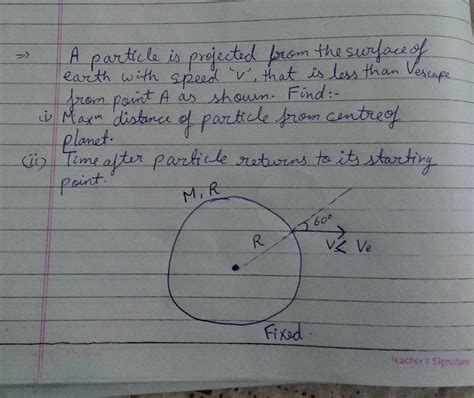 ⇒ A particle is projected from the surface of
earth with speed 'v', that is less than Vescape
from point A as shown. Find:-
i) Maxm distance of particle from centre of
planet.
(ii) Time after particle returns to its starting
point.
M, R
60°
R
V< Ve
Fixed.
Teacher's Signature